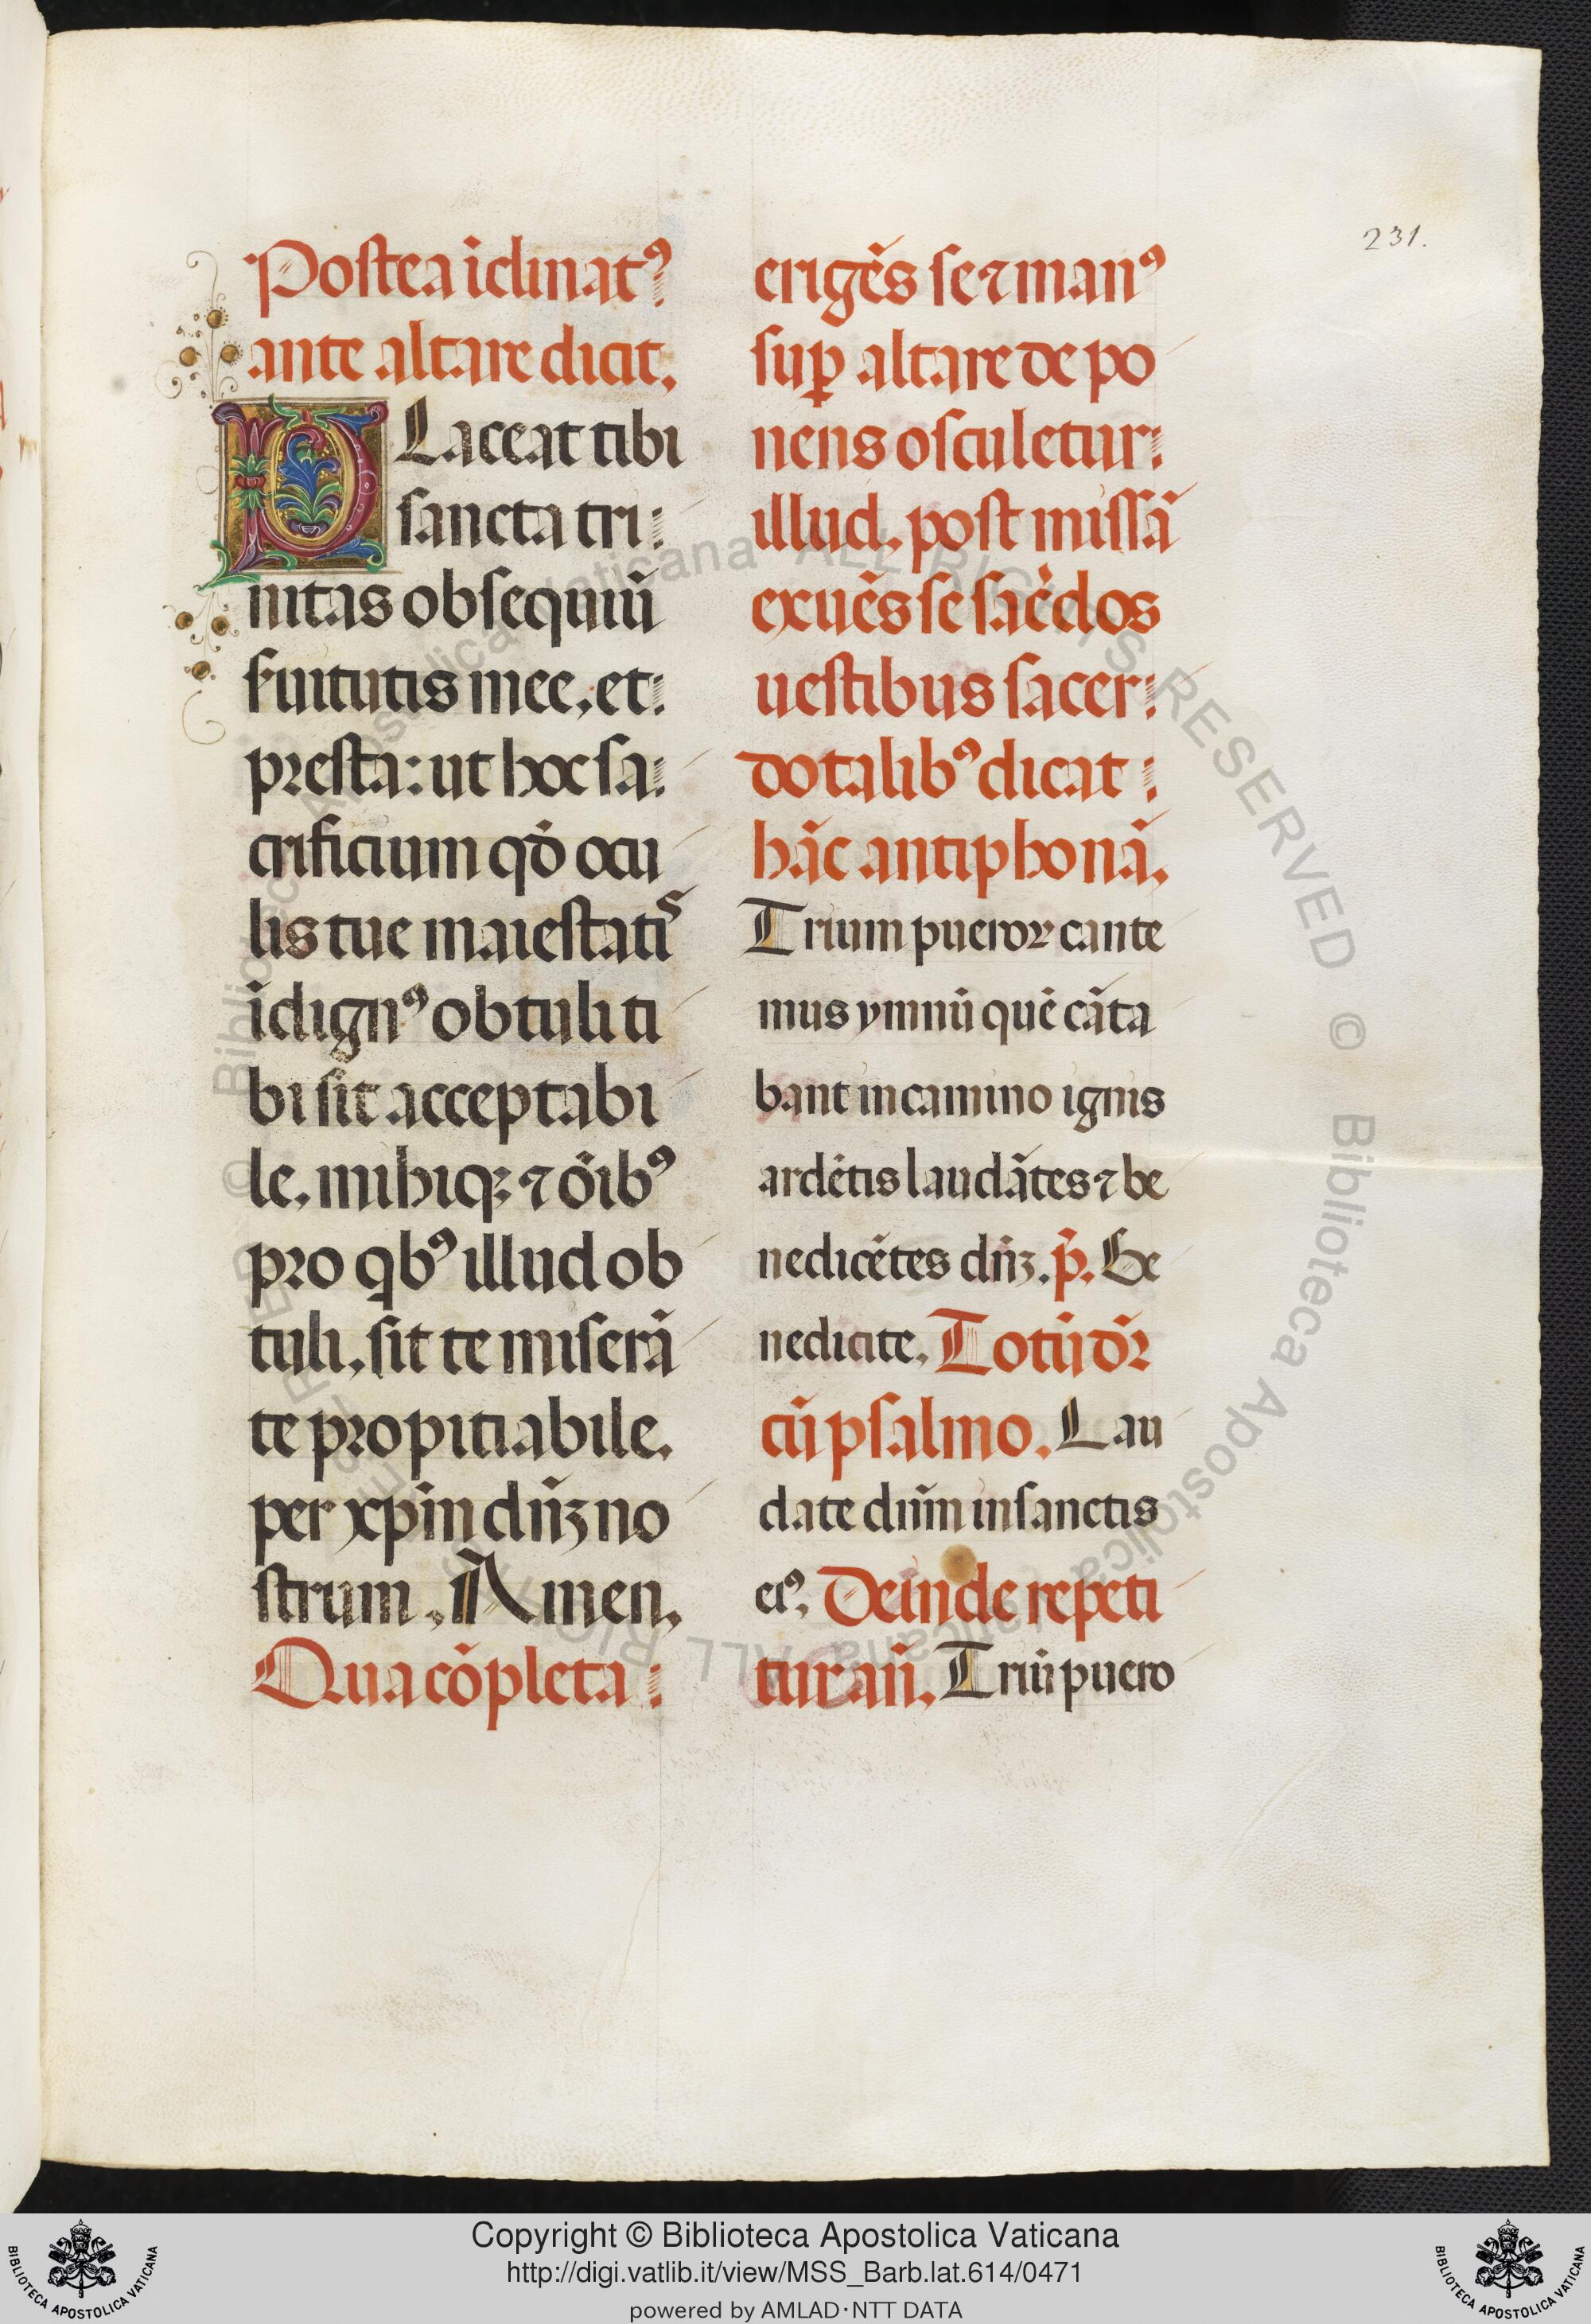 Postea īclinatꝰ
ante altare dicit.
PLaceat tibi
sancta tri
nitas obsequiū
ẜuitutis mee. et
presta: ut hoc sa
crificium qđ ocu
lis tue maiestatis
īdignꝰ obtuli ti
bi sit acceptabi
le. mihiqꝫ ⁊ oı̄bꝰ
pro qbꝰ illud ob
tuli. sit te miserā
te propitiabile.
per xp̄m dn̄ꝫ no
strum. Amen.
Qua cōpleta
erigēs se ⁊ manꝰ
suꝑ altare depo
nens osculetur
illud. post missā
exuēs se sac̓dos
uestibus sacer
dotalibꝰ dicat
hāc antiphonā.
Trium pueroꝝ cante
mus ymnū quē cāta
bant in camino ignis
ardētis laudātes ⁊ be
nedicētes dn̄ꝫ. p̄. Be
nedicite. Totū dr̄
cū psalmo. Lau
date dnm̄ in sanctis
eiꝰ. Deinde repeti
tur an̄. Triū puero
231.
Copyright © Biblioteca Apostolica Vaticana
http://digi.vatlib.it/view/MSS_Barb.lat.614/0471
powered by AMLAD·NTT DATA
BIBLIOTECA APOSTOLICA VATICANA
BIBLIOTECA APOSTOLICA VATICANA
© Biblioteca Apostolica Vaticana ALL RIGHTS RESERVED © Biblioteca Apostolica Vaticana ALL RIGHTS RESERVED